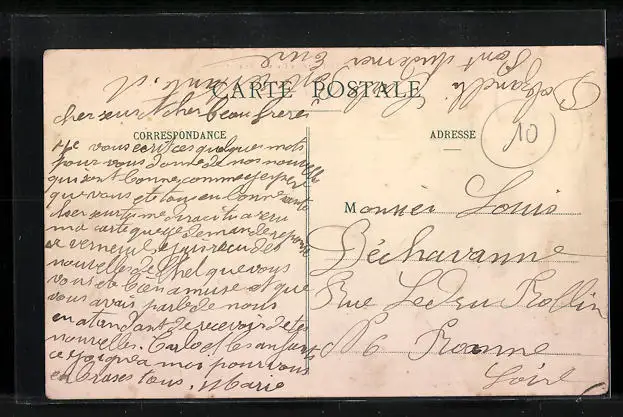 CARTE POSTALE
CORRESPONDANCE
ADRESSE
10
cher seur et cher beau frere
je vous ecrit ces quelques mots
pour vous donne de nos nouvelle
qui sont bonne comme j'espere
que vous ete tous en bonne sante
cher seur tu me dira si tu a reru
ma carte que je demande reponse
a verneuil je suis recu des
nouvelles de Chel que vous
vous ete bien amuse et que
vous avais parle de nous
en atandant de recevoir de te
nouvelles. Carlo et les anfants
ce joigne a moi pour vous
enbrases tous. Marie
Monsieur Louis
Déchavanne
Rue Ledru Rollin
No 6 Roanne
Loire
Pont Audemer
Eure